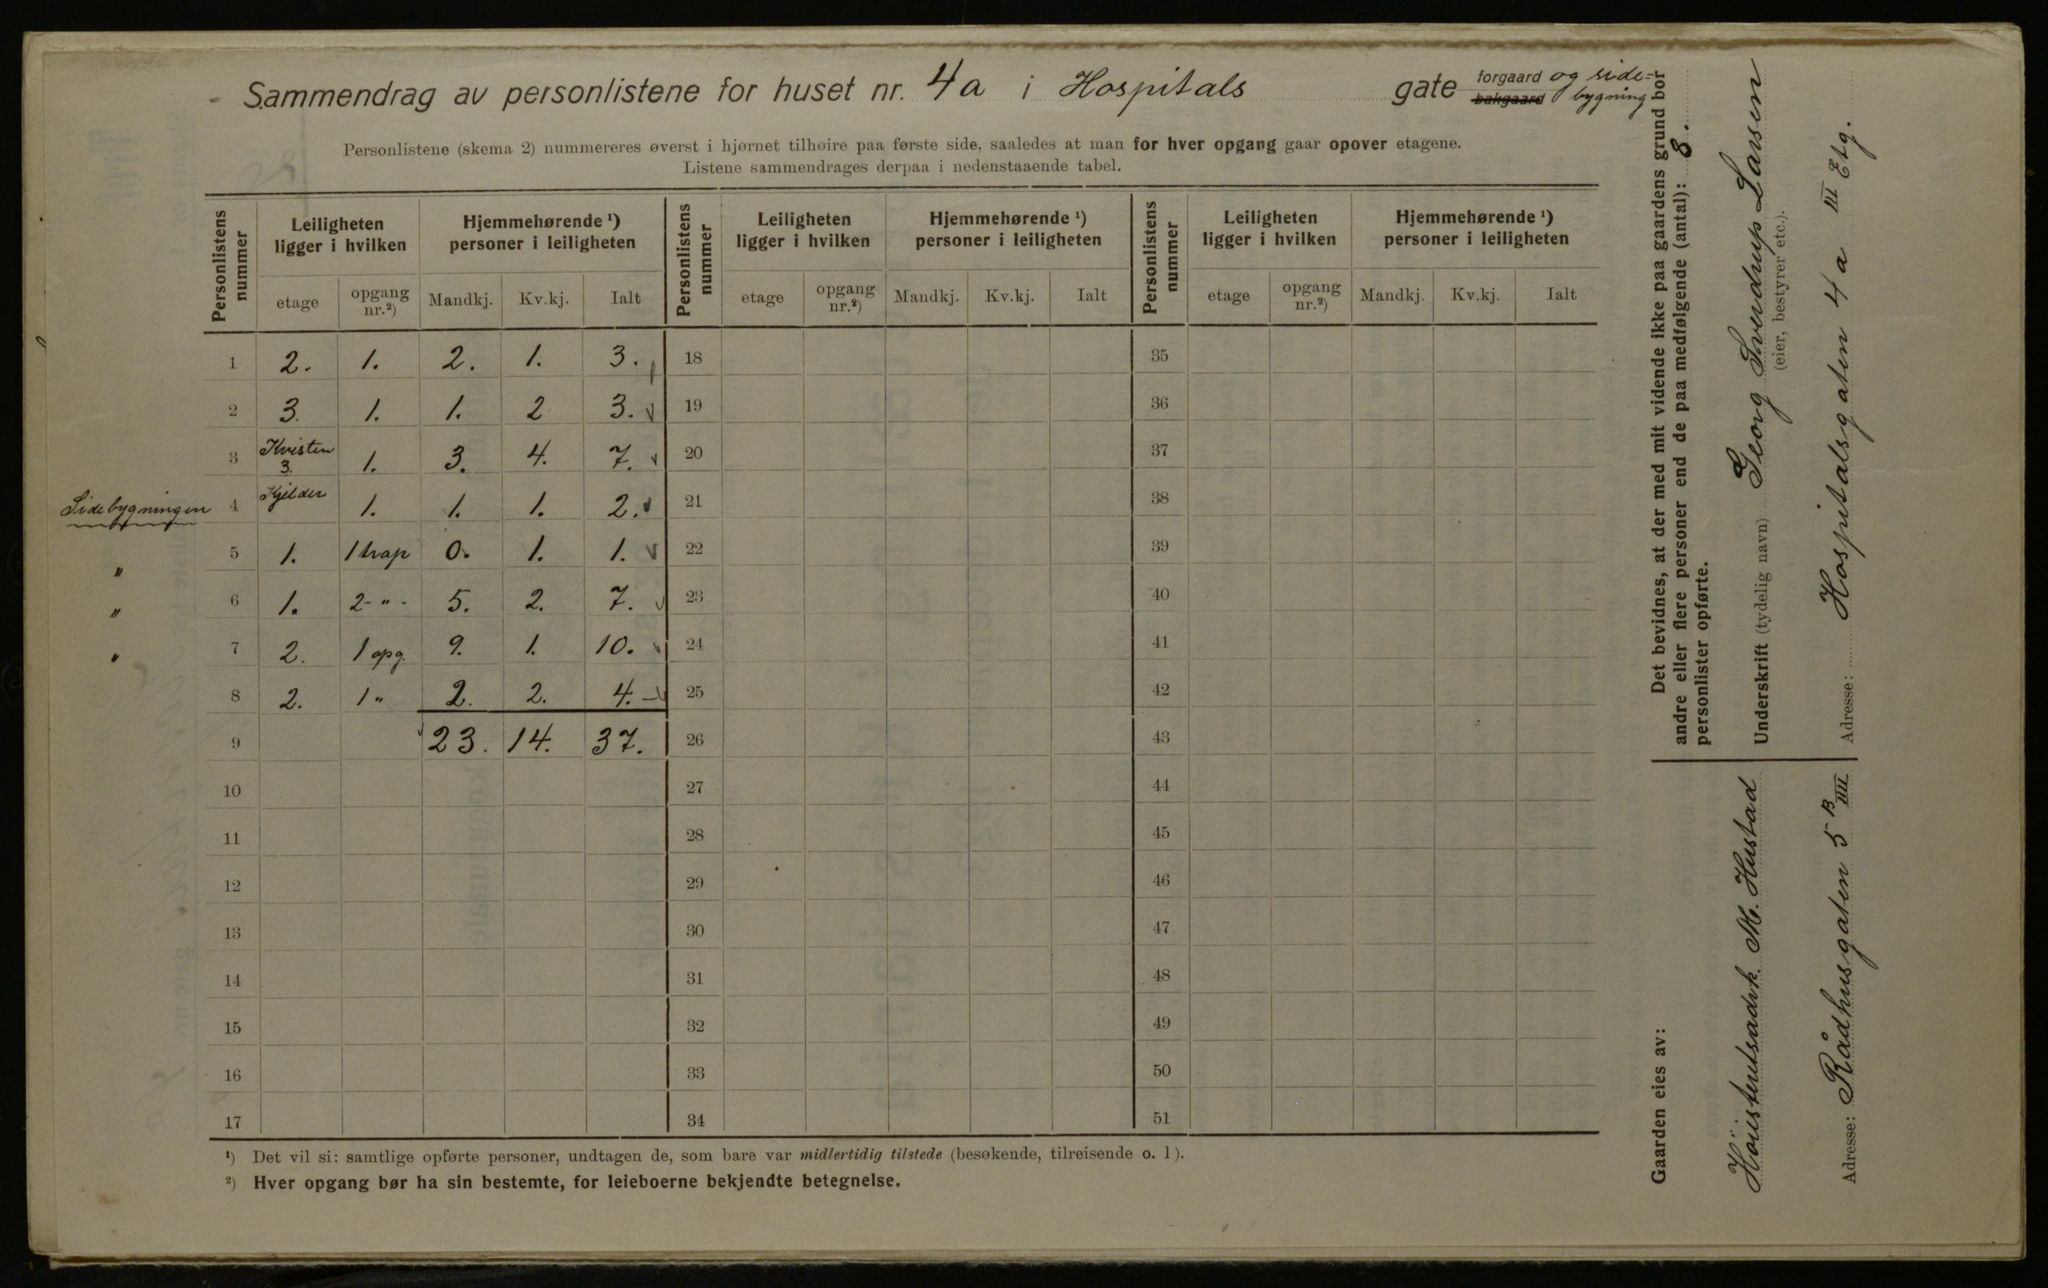 Sammendrag av personlistene for huset nr. 4a i Hospitals gate forgaard og side=
bakgaard bygning
Personlistene (skema 2) nummereres øverst i hjørnet tilhøire paa første side, saaledes at man for hver opgang gaar opover etagene.
Listene sammendrages derpaa i nedenstaaende tabel.
Personlistens nummer | Leiligheten ligger i hvilken | Hjemmehørende ¹) personer i leiligheten | Personlistens nummer | Leiligheten ligger i hvilken | Hjemmehørende ¹) personer i leiligheten | Personlistens nummer | Leiligheten ligger i hvilken | Hjemmehørende ¹) personer i leiligheten
etage | opgang nr.²) | Mandkj. | Kv.kj. | Ialt | etage | opgang nr.²) | Mandkj. | Kv.kj. | Ialt | etage | opgang nr.²) | Mandkj. | Kv.kj. | Ialt
1 2. 1. 2. 1. 3. 18 35
2 3. 1. 1. 2 3. 19 36
3 Kvisten 3. 1. 3. 4. 7. 20 37
Sidebygningen 4 Kjelder 1. 1. 1. 2. 21 38
" 5 1. 1 trap 0. 1. 1. 22 39
" 6 1. 2-"- 5. 2. 7. 23 40
" 7 2. 1 opg. 9. 1. 10. 24 41
8 2. 1 " 2. 2. 4. 25 42
9 23. 14. 37. 26 43
10 27 44
11 28 45
12 29 46
13 30 47
14 31 48
15 32 49
16 33 50
17 34 51
¹) Det vil si: samtlige opførte personer, undtagen de, som bare var midlertidig tilstede (besøkende, tilreisende o. l).
²) Hver opgang bør ha sin bestemte, for leieboerne bekjendte betegnelse.
Det bevidnes, at der med mit vidende ikke paa gaardens grund bor
andre eller flere personer end de paa medfølgende (antal): 8.
personlister opførte.
Underskrift (tydelig navn) Georg Sverdrup Larsen
(eier, bestyrer etc.).
Adresse: Hospitalsgaten 4 a III Etg.
Gaarden eies av:
Høiesteretsadvk. M. Hustad
Adresse: Rådhusgaten 5 B III